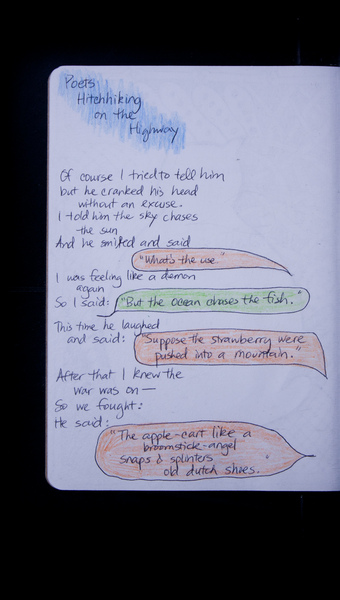 Poets
Hitchhiking
on the
Highway
Of course I tried to tell him
but he cranked his head
without an excuse.
I told him the sky chases
the sun
And he smiled and said
"What's the use."
I was feeling like a demon
again
So I said: "But the ocean chases the fish."
This time he laughed
and said: "Suppose the strawberry were
pushed into a mountain."
After that I knew the
war was on—
So we fought:
He said:
"The apple-cart like a
broomstick-angel
snaps & splinters
old dutch shoes.